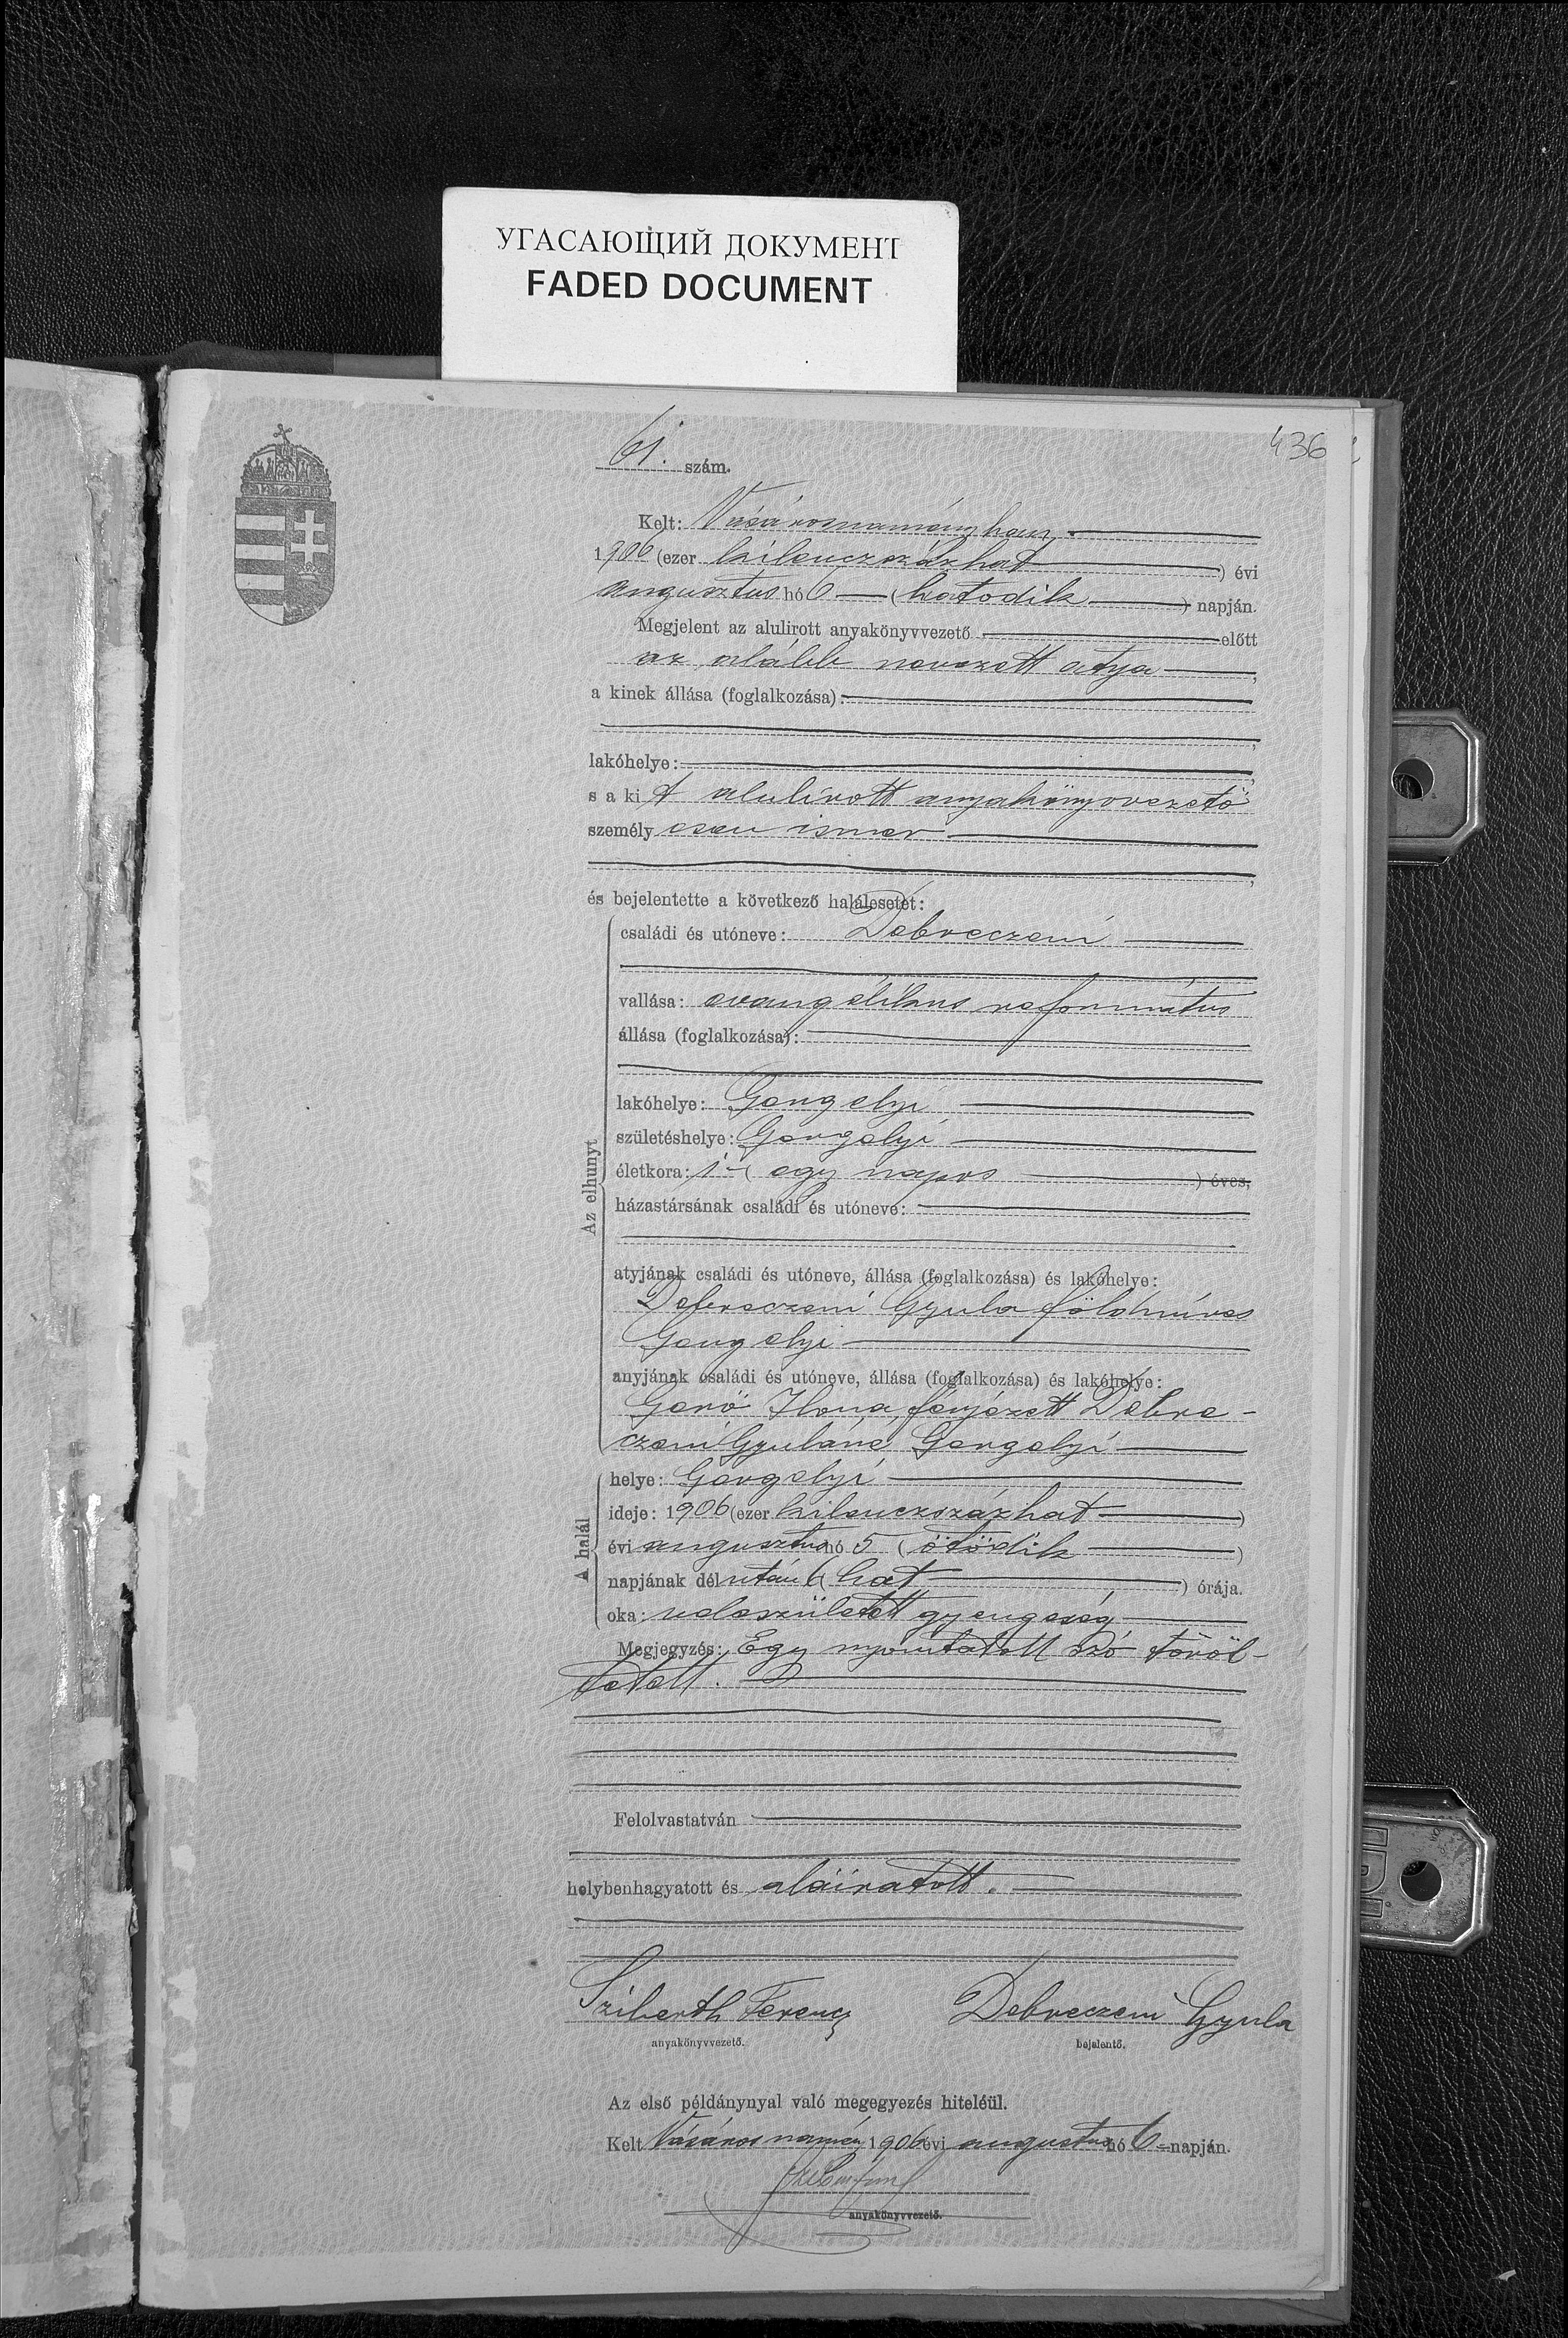 УГАСАЮЩИЙ ДОКУМЕНТ
FADED DOCUMENT
436
61. szám.
Kelt: Vásárosnaményban
1906 (ezer kilenczszázhat ) évi
augusztus hó 6 (hatodik ) napján.
Megjelent az alulirott anyakönyvvezető előtt
az alább nevezett atya ,
a kinek állása (foglalkozása):
lakóhelye:
s a kit alulírott anyakönyvvezető
személyesen ismer
és bejelentette a következő halálesetét:
Az elhunyt
családi és utóneve: Debreczeni
vallása: evangélikus református
állása (foglalkozása):
lakóhelye: Gergelyi
születéshelye: Gergelyi
életkora: 1 (egy napos ) éves,
házastársának családi és utóneve:
atyjának családi és utóneve, állása (foglalkozása) és lakóhelye:
Debreczeni Gyula földmíves
Gergelyi
anyjának családi és utóneve, állása (foglalkozása) és lakóhelye:
Gerő Ilona, férjezett Debre-
czeni Gyuláné, Gergelyi
A halál
helye: Gergelyi
ideje: 1906 (ezer kilenczszázhat )
évi augusztus hó 5 (ötödik )
napjának délután 6 (hat ) órája.
oka: veleszületett gyengeség
Megjegyzés: Egy nyomtatott szó töröl-
tetett.
Felolvastatván
helybenhagyatott és aláiratott.
Sziberth Ferencz Debreczeni Gyula
anyakönyvvezető. bejelentő.
Az első példánynyal való megegyezés hiteléül.
Kelt Vásárosnamény 1906 évi augusztus hó 6 napján.
anyakönyvvezető.